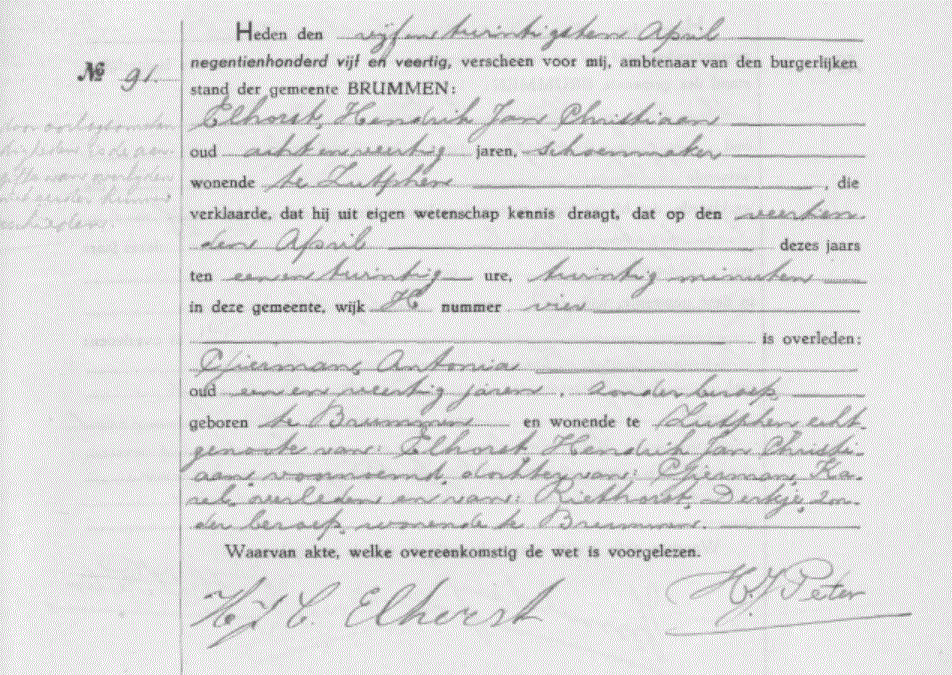 Heden den vijf en twintigsten April
negentienhonderd vijf en veertig, verscheen voor mij, ambtenaar van den burgerlijken
No 91.
stand der gemeente BRUMMEN:
Elhorst, Hendrik Jan Christiaan
door oorlogsomstan
oud acht en veertig jaren, schoenmaker
wonende te Zutphen , die
verklaarde, dat hij uit eigen wetenschap kennis draagt, dat op den veertien
den April dezes jaars
ten een en twintig ure, twintig minuten
in deze gemeente, wijk H nummer vier
is overleden:
Antonia
oud een en veertig jaren, zonder beroep,
geboren te Brummen en wonende te Zutphen echt-
genoote van: Elhorst, Hendrik Jan Christi-
aan, voornoemd, dochter van: Ka-
rel, overleden en van: Rietkorst, Derkje, zon-
der beroep, wonende te Brummen.
Waarvan akte, welke overeenkomstig de wet is voorgelezen.
H J C Elhorst
H J Peter